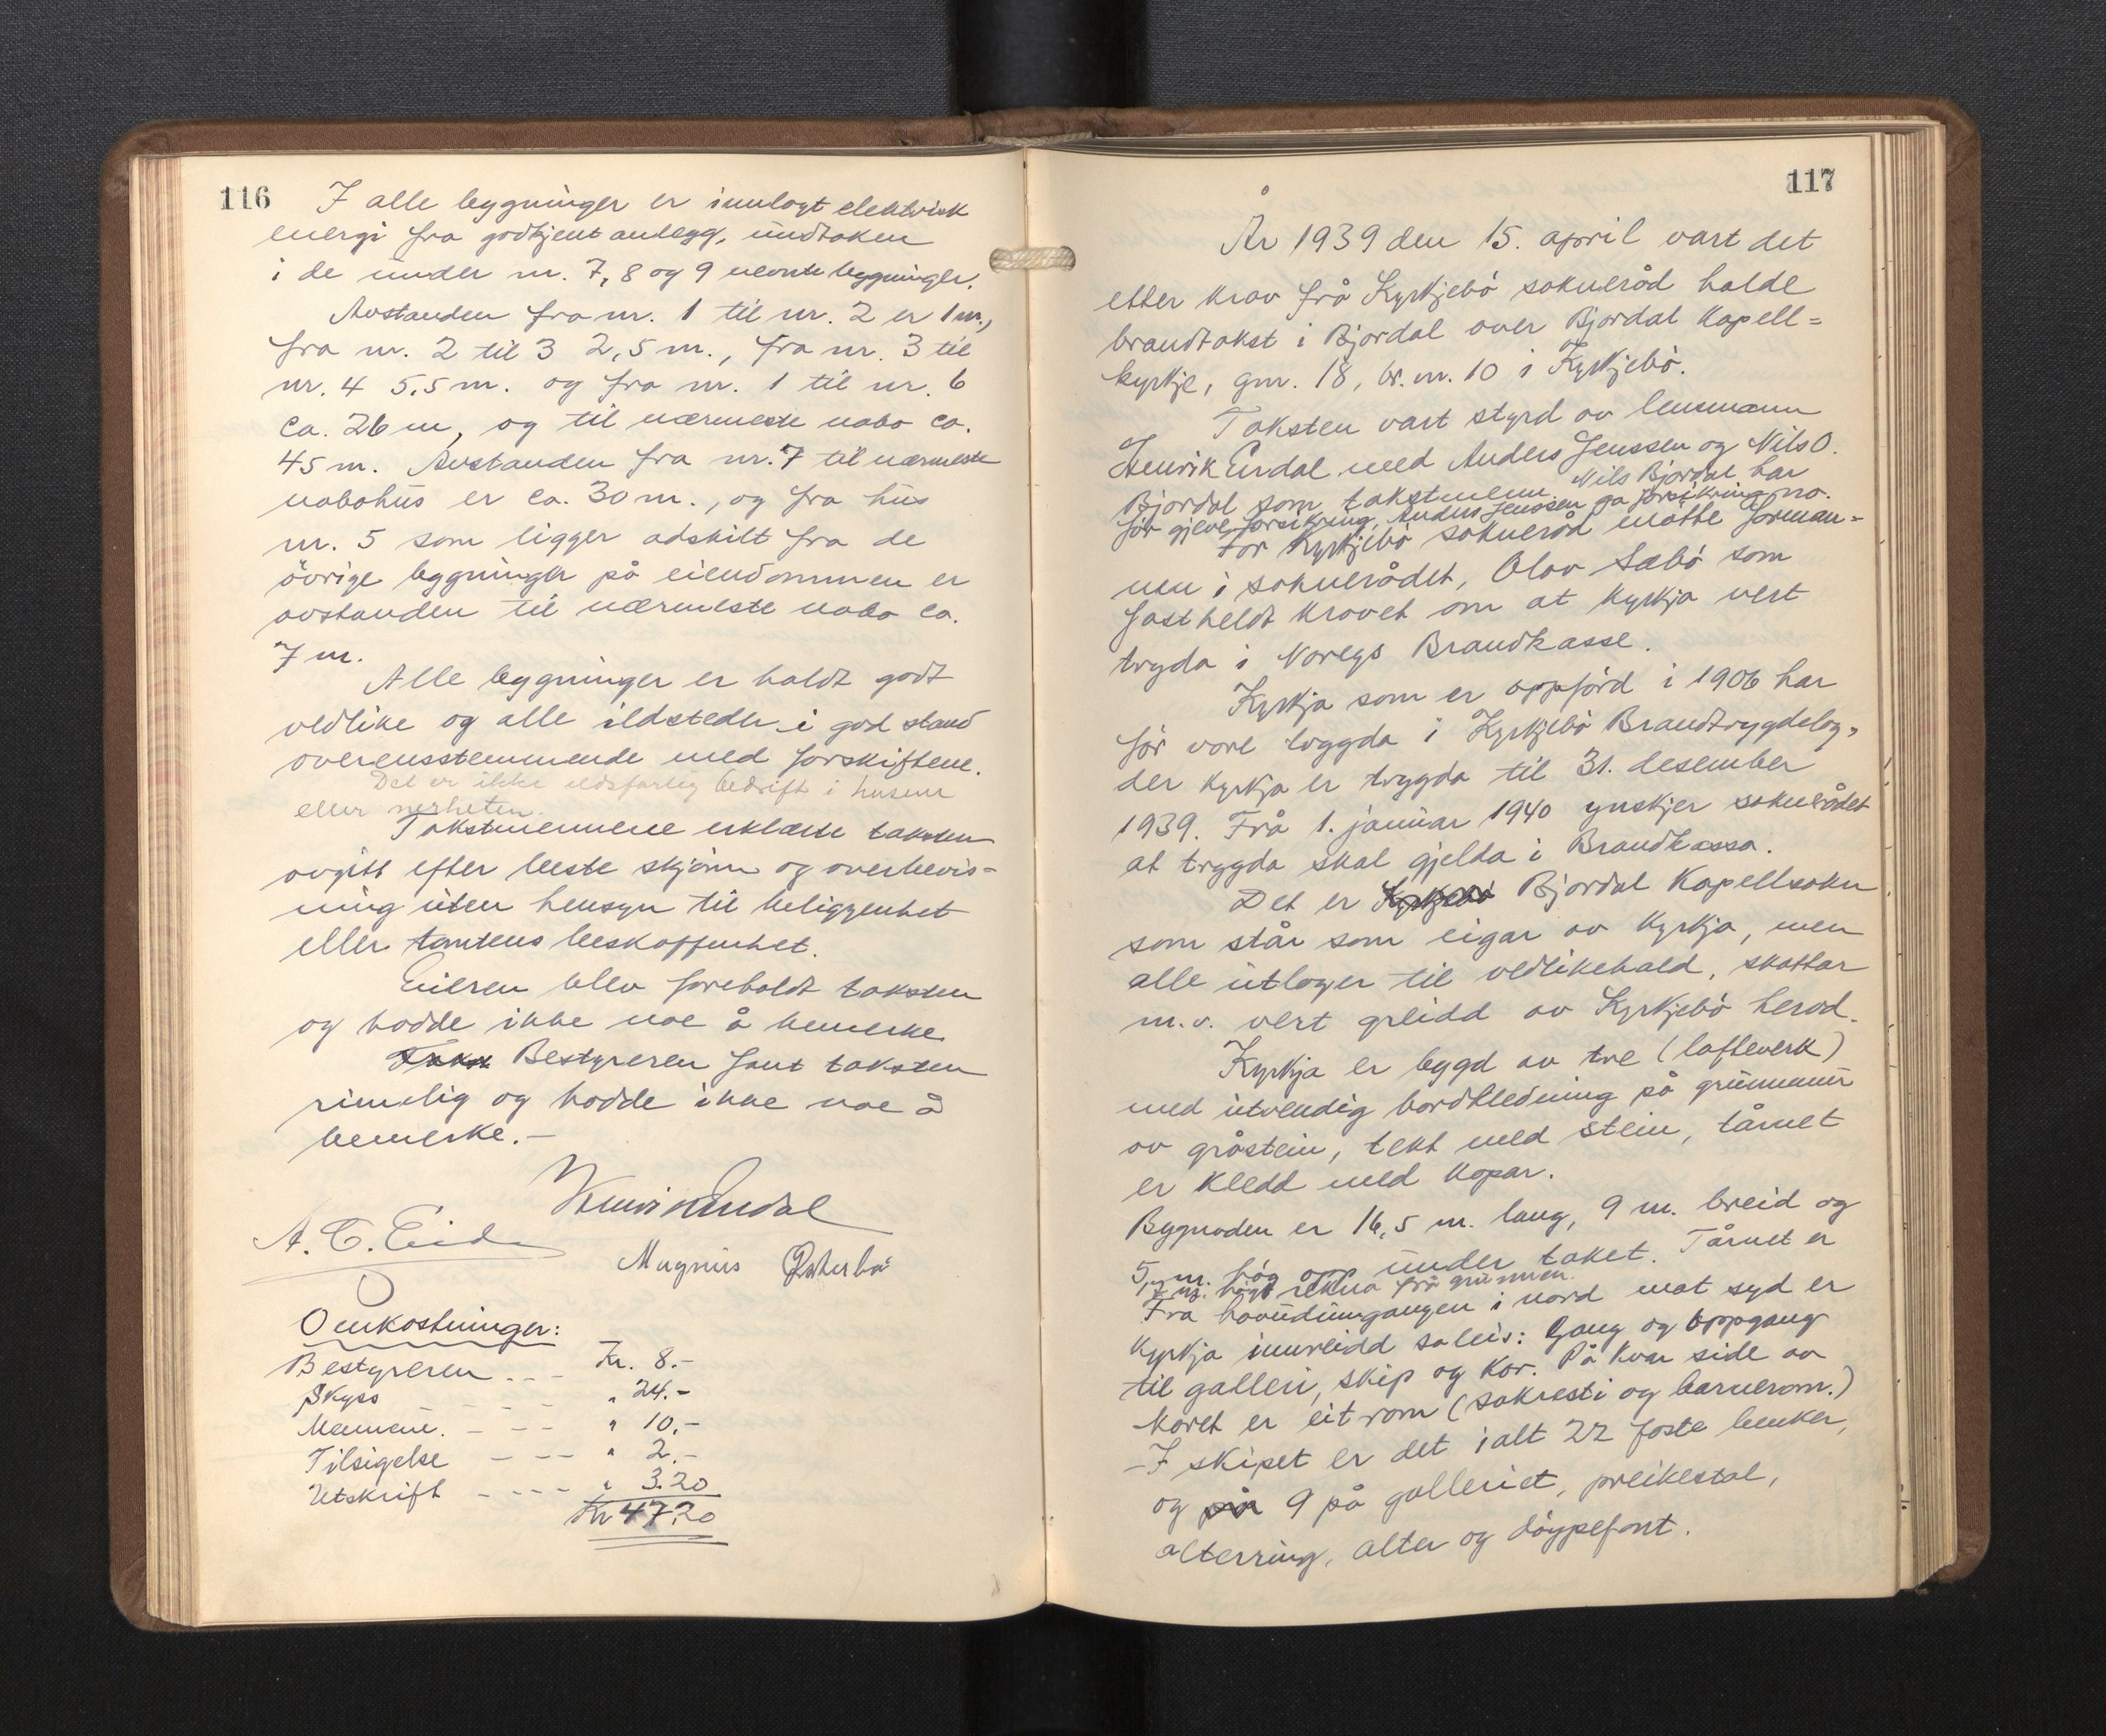 116
I alle bygninger er innlagt elektrisk
energi fra godkjent anlegg, undtaken
i de under nr. 7, 8 og 9 nevnte bygninger.
Avstanden fra nr. 1 til nr. 2 er 1 m.,
fra nr. 2 til 3 2,5 m., fra nr. 3 til
nr. 4 5,5 m. og fra nr. 1 til nr. 6
ca. 26 m, og til nærmeste nabo ca.
45 m. Avstanden fra nr. 7 til nærmeste
nabohus er ca. 30 m., og fra hus
nr. 5 som ligger adskilt fra de
övrige bygninger på eiendommen er
avstanden til nærmeste nabo ca.
7 m.
Alle bygninger er haldt godt
vedlike og alle ildsteder i god stand
overensstemmende med forskiftene.
Det er ikke eldsfarlig bedrift i husene
eller nerheten.
Takstmennene erklærte taksten
avgitt efter beste skjönn og overbevis-
ning uten hensyn til beliggenhet
eller tomtens beskaffenhet.
Eieren blev foreholdt taksten
og hadde ikke noe å bemerke
Takst Bestyreren fant taksten
rimelig og hadde ikke noe å
bemerke.—
Henrik Erdal
A. C. Eide
Magnus Österbö
Omkostninger:
Bestyreren - - - Kr. 8.-
Skyss - - - " 24.-
Mennene. - - - " 10,-
Tilsigelse - - - " 2.-
Utskrift - - - - " 3.20
Kr 47.20
117
År 1939 den 15. april vart det
etter krav frå Kyrkjebö sokneråd halde
brandtakst i Bjordal over Bjordal Kapell=
kyrkje, gnr. 18, br. nr. 10 i Kyrkjebö.
Taksten vart styrd av lensmann
Henrik Erdal med Anders Jenssen og Nils O.
Bjordal som takstmenn. Nils Bjordal har
för gjeve forsikring, Anders Jenssen ga forsikring no.
For Kyrkjebö sokneråd mötte forman=
nen i soknerådet, Olav Sæbö som
fastheldt kravet om at kyrkja vert
trygda i Noregs Brandkasse.
Kyrkja som er oppförd i 1906 har
för vore tryggda i Kyrkjebö Brandtrygdelag,
der kyrkja er trygda til 31. desember
1939. Frå 1. januar 1940 ynskjer soknerådet
at trygda skal gjelda i Brandkassa.
Det er Kyrkjebö Bjordal Kapellsokn
som står som eigar av kyrkja, men
alle utlager til vedlikehald, skattar
m.v. vert greidd av Kyrkjebö herad.
Kyrkja er bygd av tre (lafteverk)
med utvendig bordkledning på grunnmur
av gråstein, tekt med stein, tårnet
er kledd med kopar.
Bygnaden er 16,5 m. lang, 9 m. breid og
5, m. hög opp under taket. Tårnet er
m. högt rekna frå grunnen.
Fra hovudinngangen i nord mot syd er
kyrkja innreidd soleis: Gang og oppgang
til galleri, skip og kor. På kvar side av
koret er eit rom (sakresti og barnerom.)
-I skipet er det ialt 22 faste benker,
og på 9 på galleriet, preikestol,
alterring, alter og döypefont.